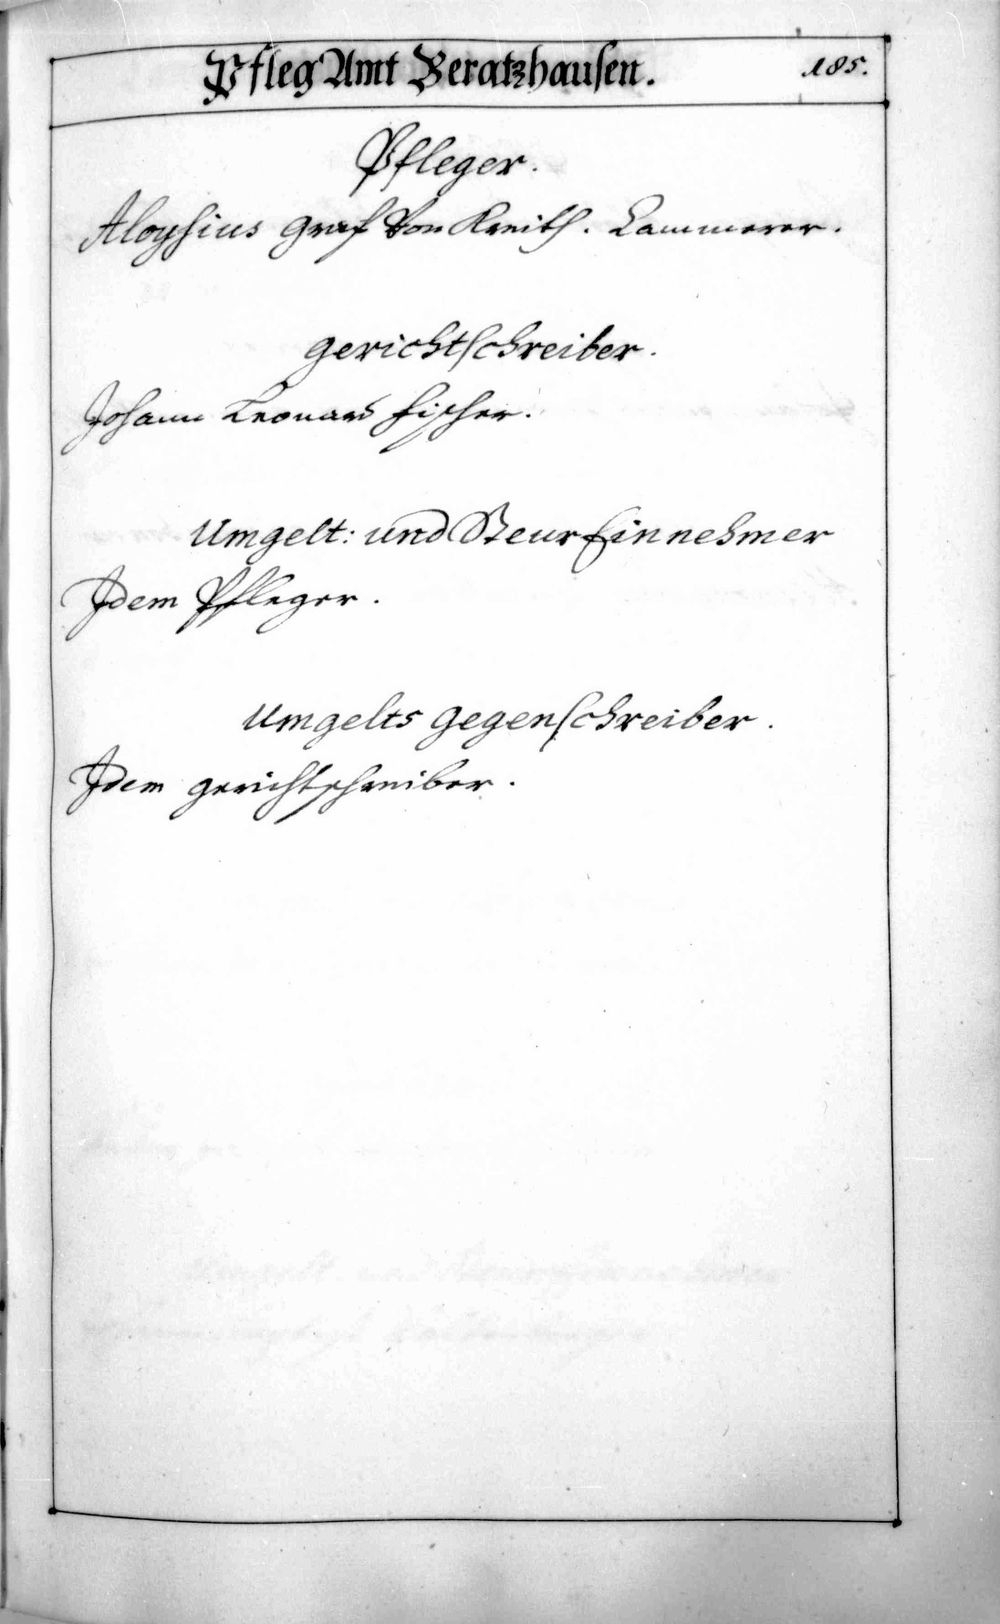 Pfleg Amt Beratzhausen.
185.
Pfleger.
Aloysius Graf Von Kreith. Cammerer.
Gerichtschreiber.
Johann Leonard Fischer.
Umgelt: und Steur Einnehmer
Idem Pfleger.
Umgelts Gegenschreiber.
Idem Gerichtschreiber.